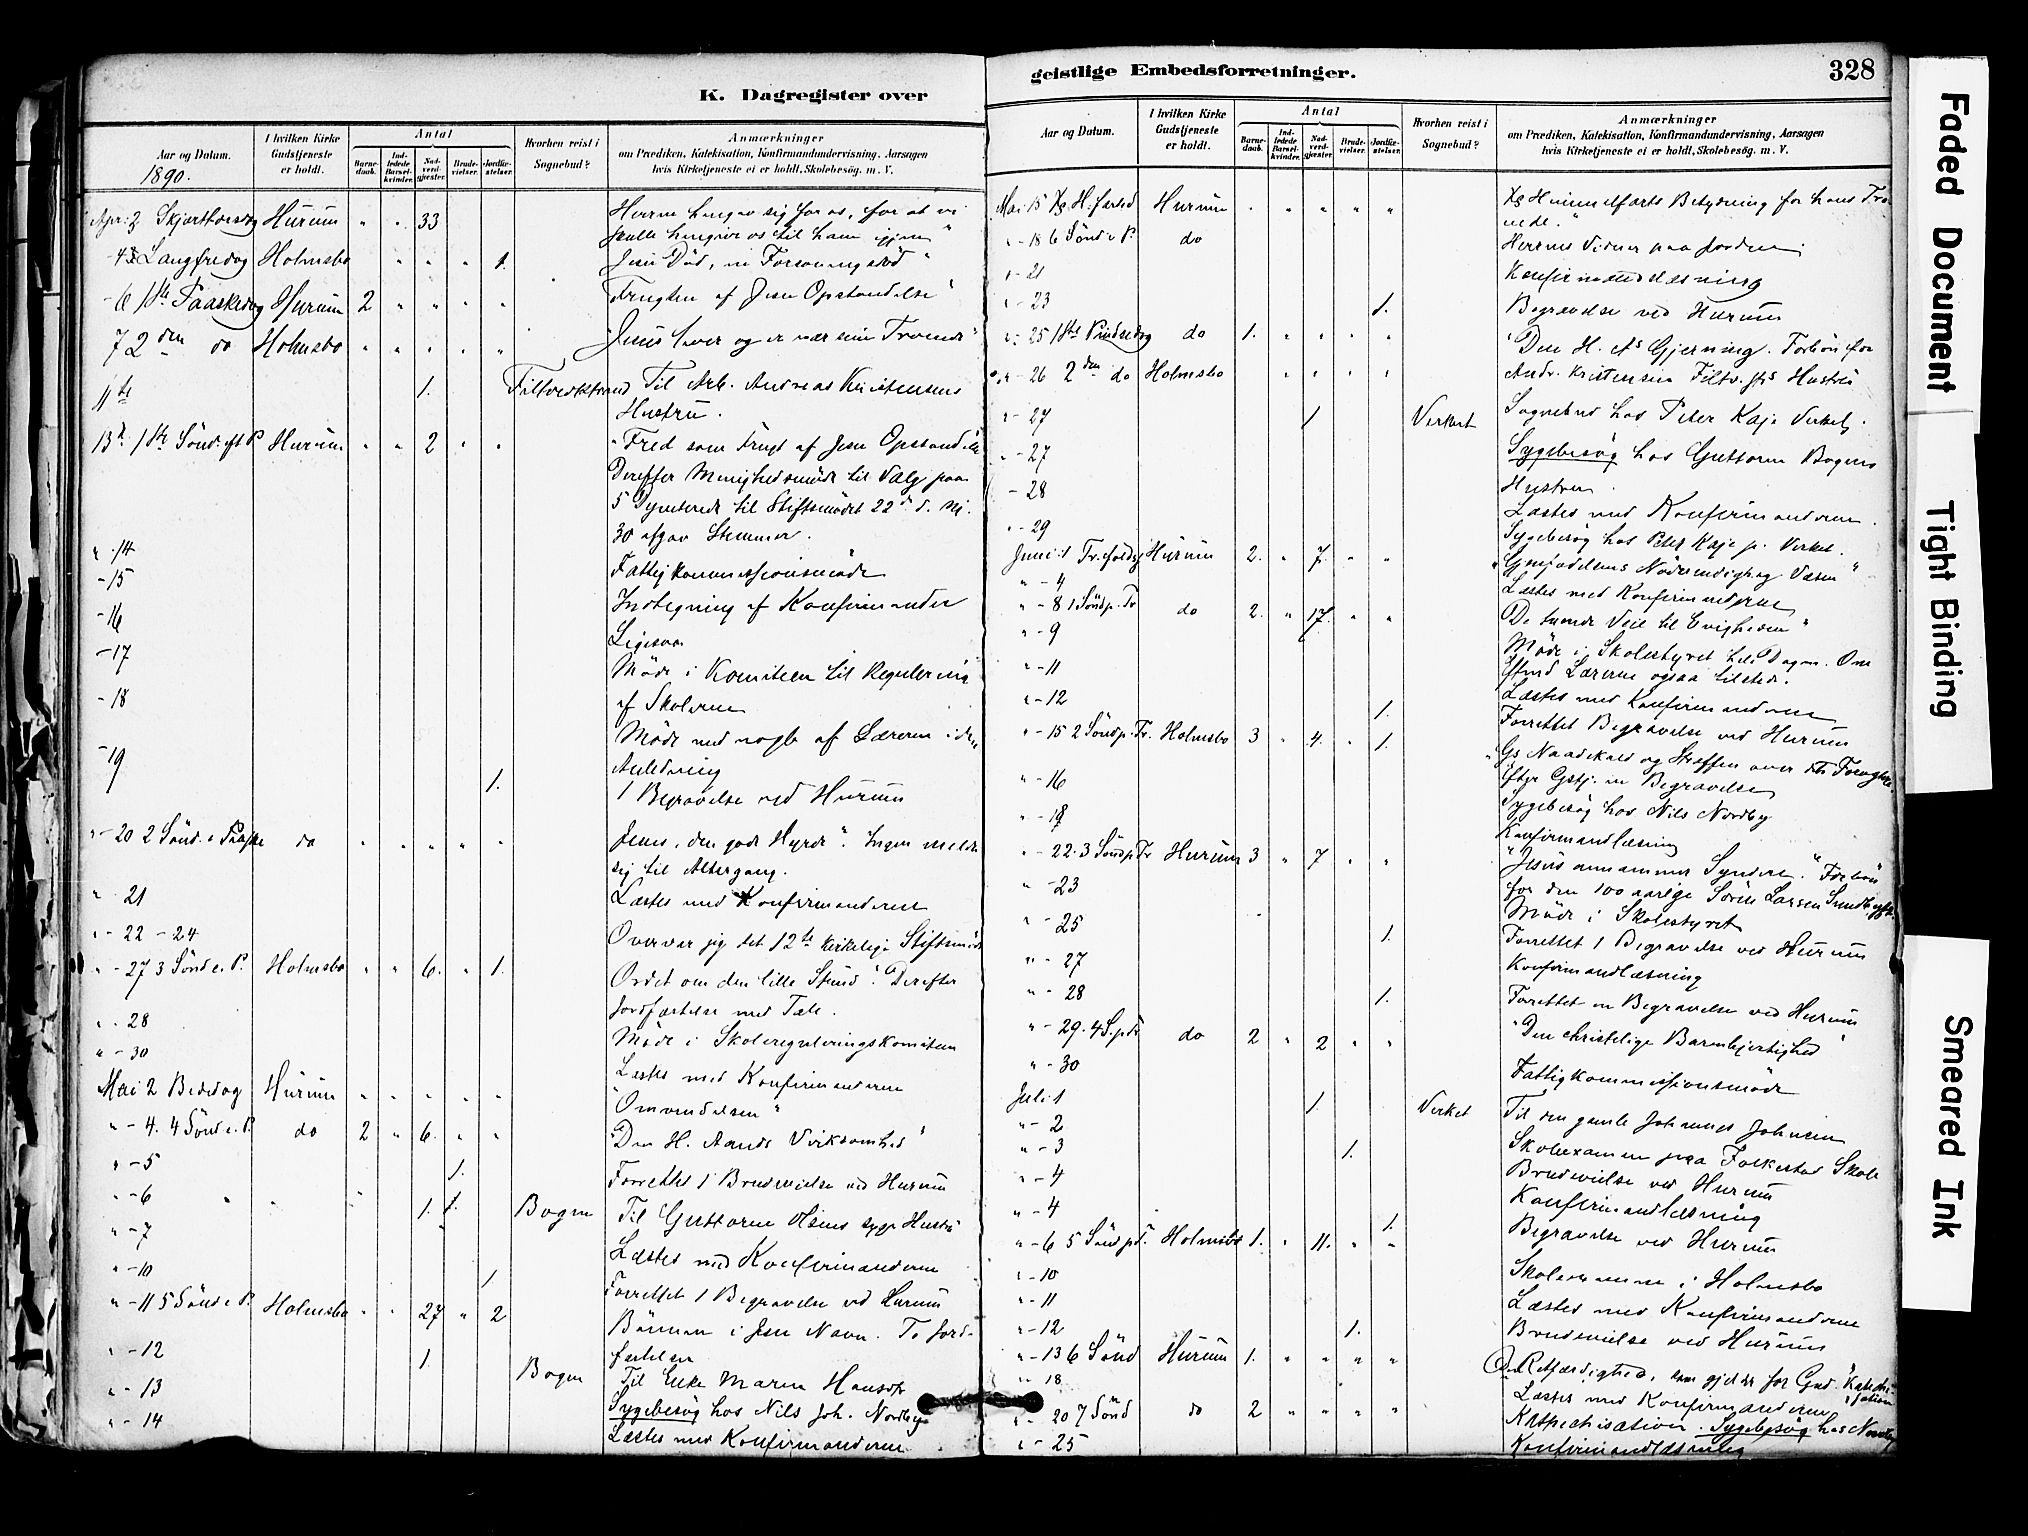 K. Dagregister over
Aar og Datum.
1890.
I hvilken Kirke Gudstjeneste er holdt.
Antal
Barnedaab.
Indledede Barselkvinder.
Nadverdgjæster.
Brudevielser.
Jordfæstelser.
Hvorhen reist i Sognebud?
Anmærkninger
om Prædiken, Katekisation, Konfirmandundervisning, Aarsagen
hvis Kirketjeneste ei er holdt, Skolebesøg. m. V.
Apr: 3 Skjærthorsdag Hurum " " 33 Herren hengav sig for os, for at vi
skulle hengive os til ham igjen"
- 4 Langfredag Holmsbo " " " " 1. Jesu Död, en Forsoningsdöd"
- 6 1ste Paaskedag Hurum 2 " " " " Frugten af Jesu Opstandelse"
7 2den do Holmsbo " " " " " "Jesus lever og er nær sine Troende"
11te 1. Filtvedtstrand Til Arb. Andreas Kristensens
Hustru.
13de 1ste Sönd. eft P Hurum " " 2 " " "Fred som Frugt af Jesu Opstandelse
Derefter Menighedsmöde til Valg paa
5 til Stiftsmödet 22de d. M.
30 afgav Stemmer.
" -14 Fattigkommissionsmöde
-15 Indtegning af Konfirmander
-16 Ligesaa
-17 Möde i Komiteen til Regulering
-18 af Skolerne
-19 Möde med nogle af Lærerne i den
Anledning
1. 1 Begravelse ved Hurum
" -20 2 Sönd. e Paaske do " " " " " Jesus, den gode Hyrde". Ingen meldte
sig til Altergang.
" - 21 Læstes med Konfirmanderne
" - 22 - 24 Overvar jeg det 12te kirkelige Stiftsmöde
" -27 3 Sönd e. P. Holmsbo " " 6. " 1. Ordet om den lille Stund". Derefter
Jordfæstelse med Tale.
" - 28 Möde i Skolereguleringskomiteen
" - 30 Læstes med Konfirmanderne
Mai 2 Bededag Hurum " " " " " "Omvendelsen"
" - 4. 4 Sönd e. P. do 2 " 6. " " "Den H. Aands Virksomhed"
" - 5 1. Forrettet 1 Brudevielse ved Hurum
" - 6 1. 1. Bogen Til Guttorm Olsens syge Hustru
" - 7 Læstes med Konfirmanderne
" - 10 1. Forrettet 1 Begravelse ved Hurum
" - 11 5 Sönd e P. Holmsbo " " 27 " 2 Bönnen i Jesu Navn. To Jord-
fæstelser
" - 12 1. Bogen Til Enke Maren Hansdtr
" - 13 Sygebesög hos Nils Joh. Nordby
" - 14 Læstes med Konfirmanderne
geistlige Embedsforretninger.
328
Aar og Datum.
I hvilken Kirke Gudstjeneste er holdt.
Antal
Barnedaab.
Indledede Barselkvinder.
Nadverdgjæster.
Brudevielser.
Jordfæstelser.
Hvorhen reist i Sognebud?
Anmærkninger
om Prædiken, Katekisation, Konfirmandundervisning, Aarsagen
hvis Kirketjeneste ei er holdt, Skolebesøg. m. V.
Mai 15 Kr H. fartsd Hurum " " " " " Kr Himmelfarts Betydning for hans Tro-
ende."
" - 18 6 Sönd e P. do Herrens Vidner paa Jorden
" - 21 Konfirmandlæsning
" - 23 1. Begravelse ved Hurum
" - 25 1ste Pindsedag do 1. " " " " "Den H. As Gjerning. Forbön for
" - 26 2den do Holmsbo " " " " Andr. Kristensen Filtv. Hustru
" - 27 1 Verket Sognebud hos Peter Kaje Verket.
" - 27 Sygebesög hos Guttorm Bogens
- 28 Hustru.
Læstes med Konfirmanderne.
" - 29 Sygebesög hos Peter Kaje p. Verket.
Juni 1 Trefoldigh Hurum 2. " 7. " " "Gjenfödelsens Nödvendighed og Væsen"
" - 4 Læstes med Konfirmanderne
" - 8 1 Sönd p. Tr do 2. " 17. " " De tvende Veie til Evigheden"
" - 9 Möde i Skolestyret hele Dagen. Om
Eftmd Lærerne ogsaa tilstede.
" - 11 Læstes med Konfirmanderne
" - 12 1. Forrettet Begravelse ved Hurum
" - 15 2 Sönd p. Tr. Holmsbo 3 " 4. " 1. "Gs Naadekald og Straffen over dets Foragtere.
Efter Gstj. en Begravelse
" - 16 Sygebesög hos Nils Nordby
" - 19 Konfirmandlæsning
" - 22. 3 Sönd p Tr Hurum 3 " 7 " " "Jesus annammer Syndere." Forbön
for den 100 aarige Sören Larsen
" - 23 Möde i Skolestyret
" - 25 1. Forrettet 1 Begravelse ved Hurum
" - 27 Konfirmandlæsning
" - 28 1. Forrettet en Begravelse ved Hurum
" - 29. 4 S. p Tr do 2 " 2 " " "Den christelige Barmhjertighed"
" - 30 Fattigkommissionsmöde
Juli 1 1. Verket Til den gamle Johannes Johnsen
" - 2 Skoleexamen paa Folkestad Skole
" - 3 1. Brudevielse ved Hurum
" - 4 Konfirmandlæsning
" - 4 1. Begravelse ved Hurum
" - 6 5 Sönd p T. Holmsbo 1. " 11. " "
" - 10 Skoleexamen i Holmsbo
" - 11 Læstes med Konfirmanderne
" - 12 1. Brudevielse ved Hurum
" - 13 6 Sönd Hurum 1. " " " " Den Retfærdighed, som gjelder for Gud. Katekisation
" 18 Læstes med Konfirmanderne
" - 20 7 Sönd do 2 " " " " Katekisation Sygebesög hos Nordby
" - 25 Konfirmandlæsning
Faded Document
Tight Binding
Smeared Ink